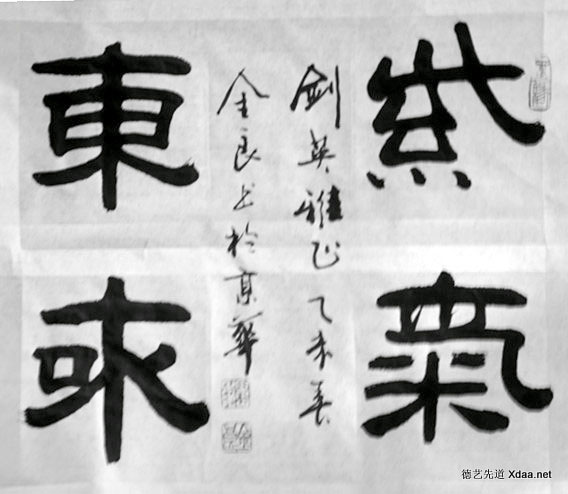 紫氣
剑英雅正 乙未春
金良书於京華
東來
德艺先道 Xdaa.net